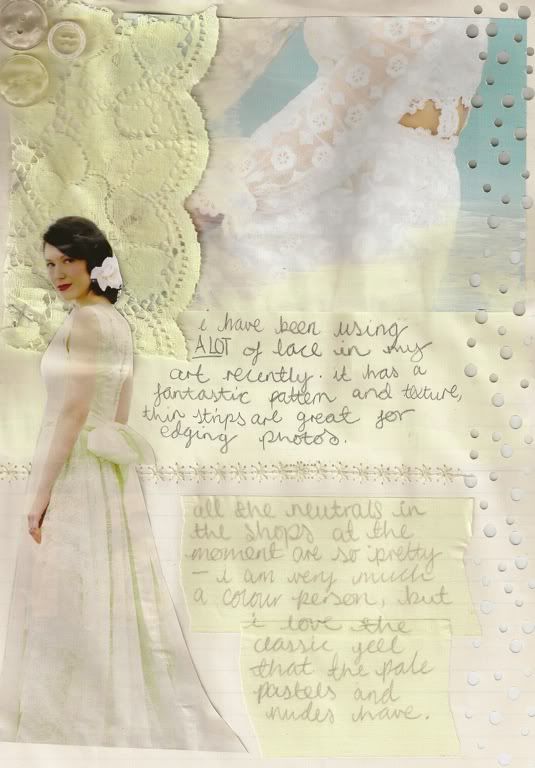 i have been using
A LOT of lace in my
art recently. it has a
fantastic pattern and texture,
thin strips are great for
edging photos.
all the neutrals in
the shops at the
moment are so pretty
- i am very much
a colour person, but
i love the
classic yeel
that the pale
pastels and
nudes have.